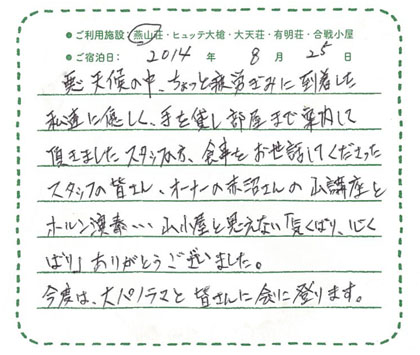 ●ご利用施設:燕山荘・ヒュッテ大槍・大天荘・有明荘・合戦小屋
●ご宿泊日: 2014 年 8 月 25 日
悪天候の中、ちょっと疲労ぎみに到着した
私達に優しく、手を貸し部屋まで案内して
頂きましたスタッフの方、食事をお世話してくださった
スタッフの皆さん、オーナーの赤沼さんの山講座と
ホルン演奏・・・山小屋と思えない「気くばり、心く
ばり」ありがとうございました。
今度は、大パノラマと皆さんに会に登ります。